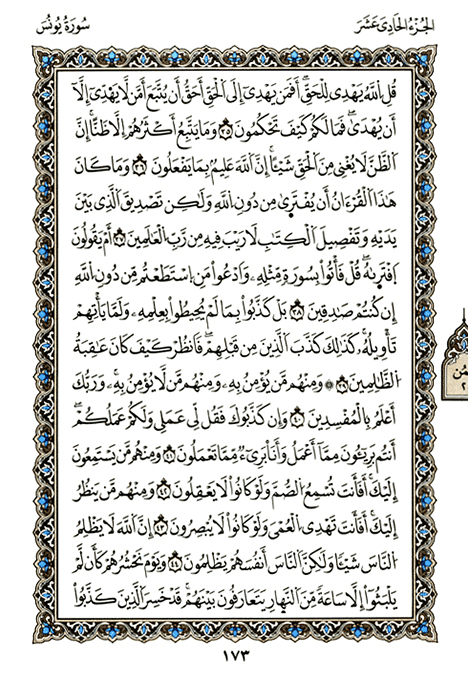 الجزء الحادي عشر
سورة يونس
قُلِ اللَّهُ يَهْدِي لِلْحَقِّ أَفَمَنْ يَهْدِي إِلَى الْحَقِّ أَحَقُّ أَنْ يُتَّبَعَ أَمَّن لَّا يَهَدِّي إِلَّا
أَنْ يُهْدَىٰ فَمَا لَكُمْ كَيْفَ تَحْكُمُونَ ٣٥ وَمَا يَتَّبِعُ أَكْثَرُهُمُ إِلَّا ظَنًّا إِنَّ
الظَّنَّ لَا يُغْنِي مِنَ الْحَقِّ شَيْئًا إِنَّ اللَّهَ عَلِيمٌ بِمَا يَفْعَلُونَ ٣٦ وَمَا كَانَ
هَٰذَا الْقُرْءَانُ أَنْ يُفْتَرَىٰ مِن دُونِ اللَّهِ وَلَٰكِن تَصْدِيقَ الَّذِي بَيْنَ
يَدَيْهِ وَتَفْصِيلَ الْكِتَٰبِ لَا رَيْبَ فِيهِ مِن رَّبِّ الْعَٰلَمِينَ ٣٧ أَمْ يَقُولُونَ
افْتَرَىٰهُ قُلْ فَأْتُوا بِسُورَةٍ مِّثْلِهِ وَادْعُوا مَنِ اسْتَطَعْتُم مِّن دُونِ اللَّهِ
إِن كُنتُمْ صَٰدِقِينَ ٣٨ بَلْ كَذَّبُوا بِمَا لَمْ يُحِيطُوا بِعِلْمِهِ وَلَمَّا يَأْتِهِمْ
تَأْوِيلُهُ كَذَٰلِكَ كَذَّبَ الَّذِينَ مِن قَبْلِهِمْ فَانظُرْ كَيْفَ كَانَ عَٰقِبَةُ
الظَّٰلِمِينَ ٣٩ وَمِنْهُم مَّنْ يُؤْمِنُ بِهِ وَمِنْهُم مَّن لَّا يُؤْمِنُ بِهِ وَرَبُّكَ
أَعْلَمُ بِالْمُفْسِدِينَ ٤٠ وَإِن كَذَّبُوكَ فَقُل لِّي عَمَلِي وَلَكُمْ عَمَلُكُمْ
أَنتُم بَرِيئُونَ مِمَّا أَعْمَلُ وَأَنَا بَرِيءٌ مِّمَّا تَعْمَلُونَ ٤١ وَمِنْهُم مَّنْ يَسْتَمِعُونَ
إِلَيْكَ أَفَأَنتَ تُسْمِعُ الصُّمَّ وَلَوْ كَانُوا لَا يَعْقِلُونَ ٤٢ وَمِنْهُم مَّنْ يَنظُرُ
إِلَيْكَ أَفَأَنتَ تَهْدِي الْعُمْيَ وَلَوْ كَانُوا لَا يُبْصِرُونَ ٤٣ إِنَّ اللَّهَ لَا يَظْلِمُ
النَّاسَ شَيْئًا وَلَٰكِنَّ النَّاسَ أَنفُسَهُمْ يَظْلِمُونَ ٤٤ وَيَوْمَ نَحْشُرُهُمْ كَأَن لَّمْ
يَلْبَثُوا إِلَّا سَاعَةً مِّنَ النَّهَارِ يَتَعَارَفُونَ بَيْنَهُمْ قَدْ خَسِرَ الَّذِينَ كَذَّبُوا
١٧٣